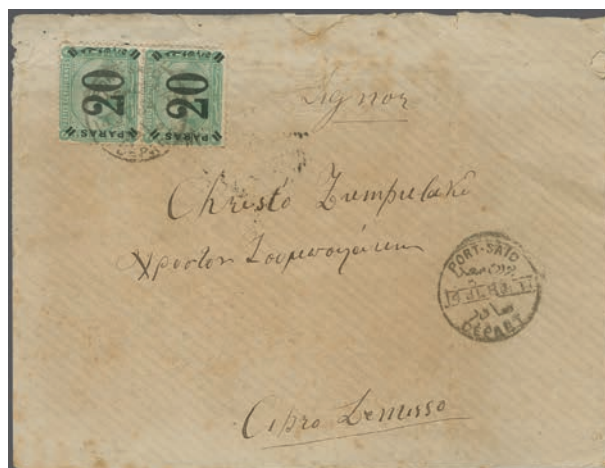 20 20
PARAS PARAS
Signor
Christo Zumpulaki
Χρηστον Ζουμπουλακην
PORT-SAID
DÉPART
Cipro Lemisso